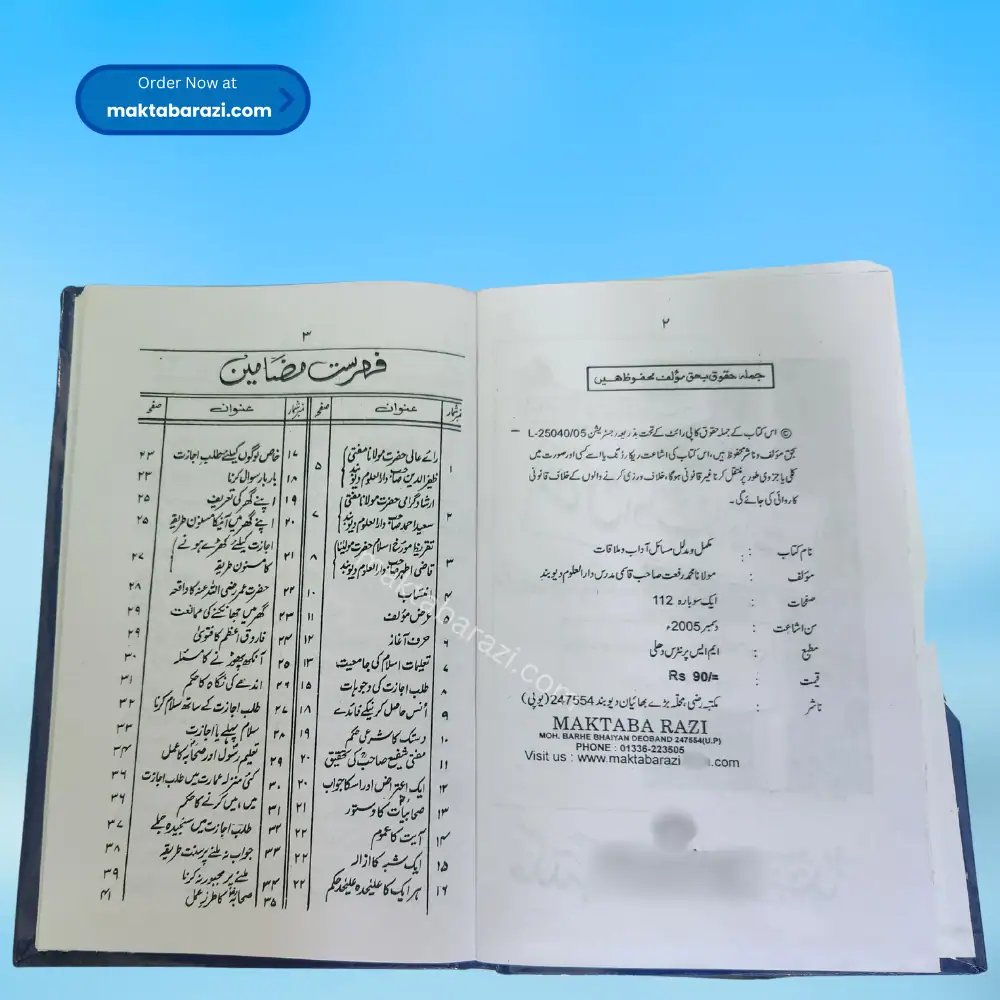 Order Now at
maktabarazi.com
۲
جملہ حقوق بحق مؤلف محفوظ ھیں
© اس کتاب کے جملہ حقوق کاپی رائٹ کے تحت بذریعہ رجسٹریشن L-25040/05
بحق مؤلف و ناشر محفوظ ہیں، اس کتاب کی اشاعت ریکارڈنگ یا اسے کسی اور صورت میں
کلی یا جزوی طور پر منتقل کرنا غیر قانونی ہوگا، خلاف ورزی کرنے والوں کے خلاف قانونی
کاروائی کی جائے گی۔
نام کتاب : مکمل و مدلل مسائل آداب و ملاقات
مؤلف : مولانا محمد رفعت صاحب قاسمی مدرس دارالعلوم دیوبند
صفحات : ایک سو بارہ 112
سن اشاعت : دسمبر 2005ء
مطبع : ایم ایس پرنٹرس دھلی
قیمت : Rs 90/=
ناشر : مکتبہ رضی محلّہ بڑے بھائیان دیوبند 247554 (یوپی)
MAKTABA RAZI
MOH. BARHE BHAIYAN DEOBAND 247554(U.P)
PHONE : 01336-223505
Visit us : www.maktabarazi .com
۳
فہرست مضامین
نمبر شمار عنوان صفحہ نمبر شمار عنوان صفحہ
۱ رائے عالی حضرت مولانا مفتی
ظفیر الدین صاحب دارالعلوم دیوبند ۵
۲ ارشاد گرامی حضرت مولانا مفتی
سعید احمد صاحب دارالعلوم دیوبند ۷
۳ تقریظ مؤرخ اسلام حضرت مولینا
قاضی اطہر صاحب دارالعلوم دیوبند ۸
۴ انتساب ۱۰
۵ عرض مؤلف ۱۱
۶ حرف آغاز ۱۲
۷ تعلیمات اسلام کی جامعیت ۱۳
۸ طلب اجازت کی وجوہات ۱۵
۹ اُنس حاصل کرنیکے فائدے ۱۸
۱۰ دستک کا شرعی حکم ۱۹
۱۱ مفتی شفیع صاحبؒ کی تحقیق ۲۰
۱۲ ایک اعتراض اور اسکا جواب ۲۰
۱۳ صحابیات کا دستور ۲۱
۱۴ آیت کا عموم ۲۲
۱۵ ایک شبہ کا ازالہ ۲۲
۱۶ ہر ایک کا علیٰحدہ علیٰحدہ حکم ۲۲
۱۷ خاص لوگوں کیلئے طلب اجازت ۲۳
۱۸ بار بار سوال کرنا ۲۳
۱۹ اپنے گھر کی تعریف ۲۵
۲۰ اپنے گھر میں آنیکا مسنون طریقہ ۲۵
۲۱ اجازت کیلئے کھڑے ہونے
کا مسنون طریقہ ۲۷
۲۲ حضرت عمر رضی اللہ عنہ کا واقعہ ۲۸
۲۳ گھر میں جھانکنے کی ممانعت ۲۹
۲۴ فاروق اعظم کا فتویٰ ۲۹
۲۵ آنکھ پھوڑنے کا مسئلہ ۳۰
۲۶ اندھے کی نگاہ کا حکم ۳۱
۲۷ طلب اجازت کے ساتھ سلام کرنا ۳۲
۲۸ سلام پہلے یا اجازت ۳۳
۲۹ تعلیم رسولؐ اور صحابہؓ کا عمل ۳۴
۳۰ کئی منزلہ عمارت میں طلب اجازت ۳۶
۳۱ میں، میں کرنے کا حکم ۳۶
۳۲ طلب اجازت میں سنجیدہ جملے ۳۷
۳۳ جواب نہ ملنے پر سنت طریقہ ۳۸
۳۴ ملنے پر مجبور نہ کرنا ۳۹
۳۵ صحابہؓ کا طرز عمل ۴۱
maktabarazi.com